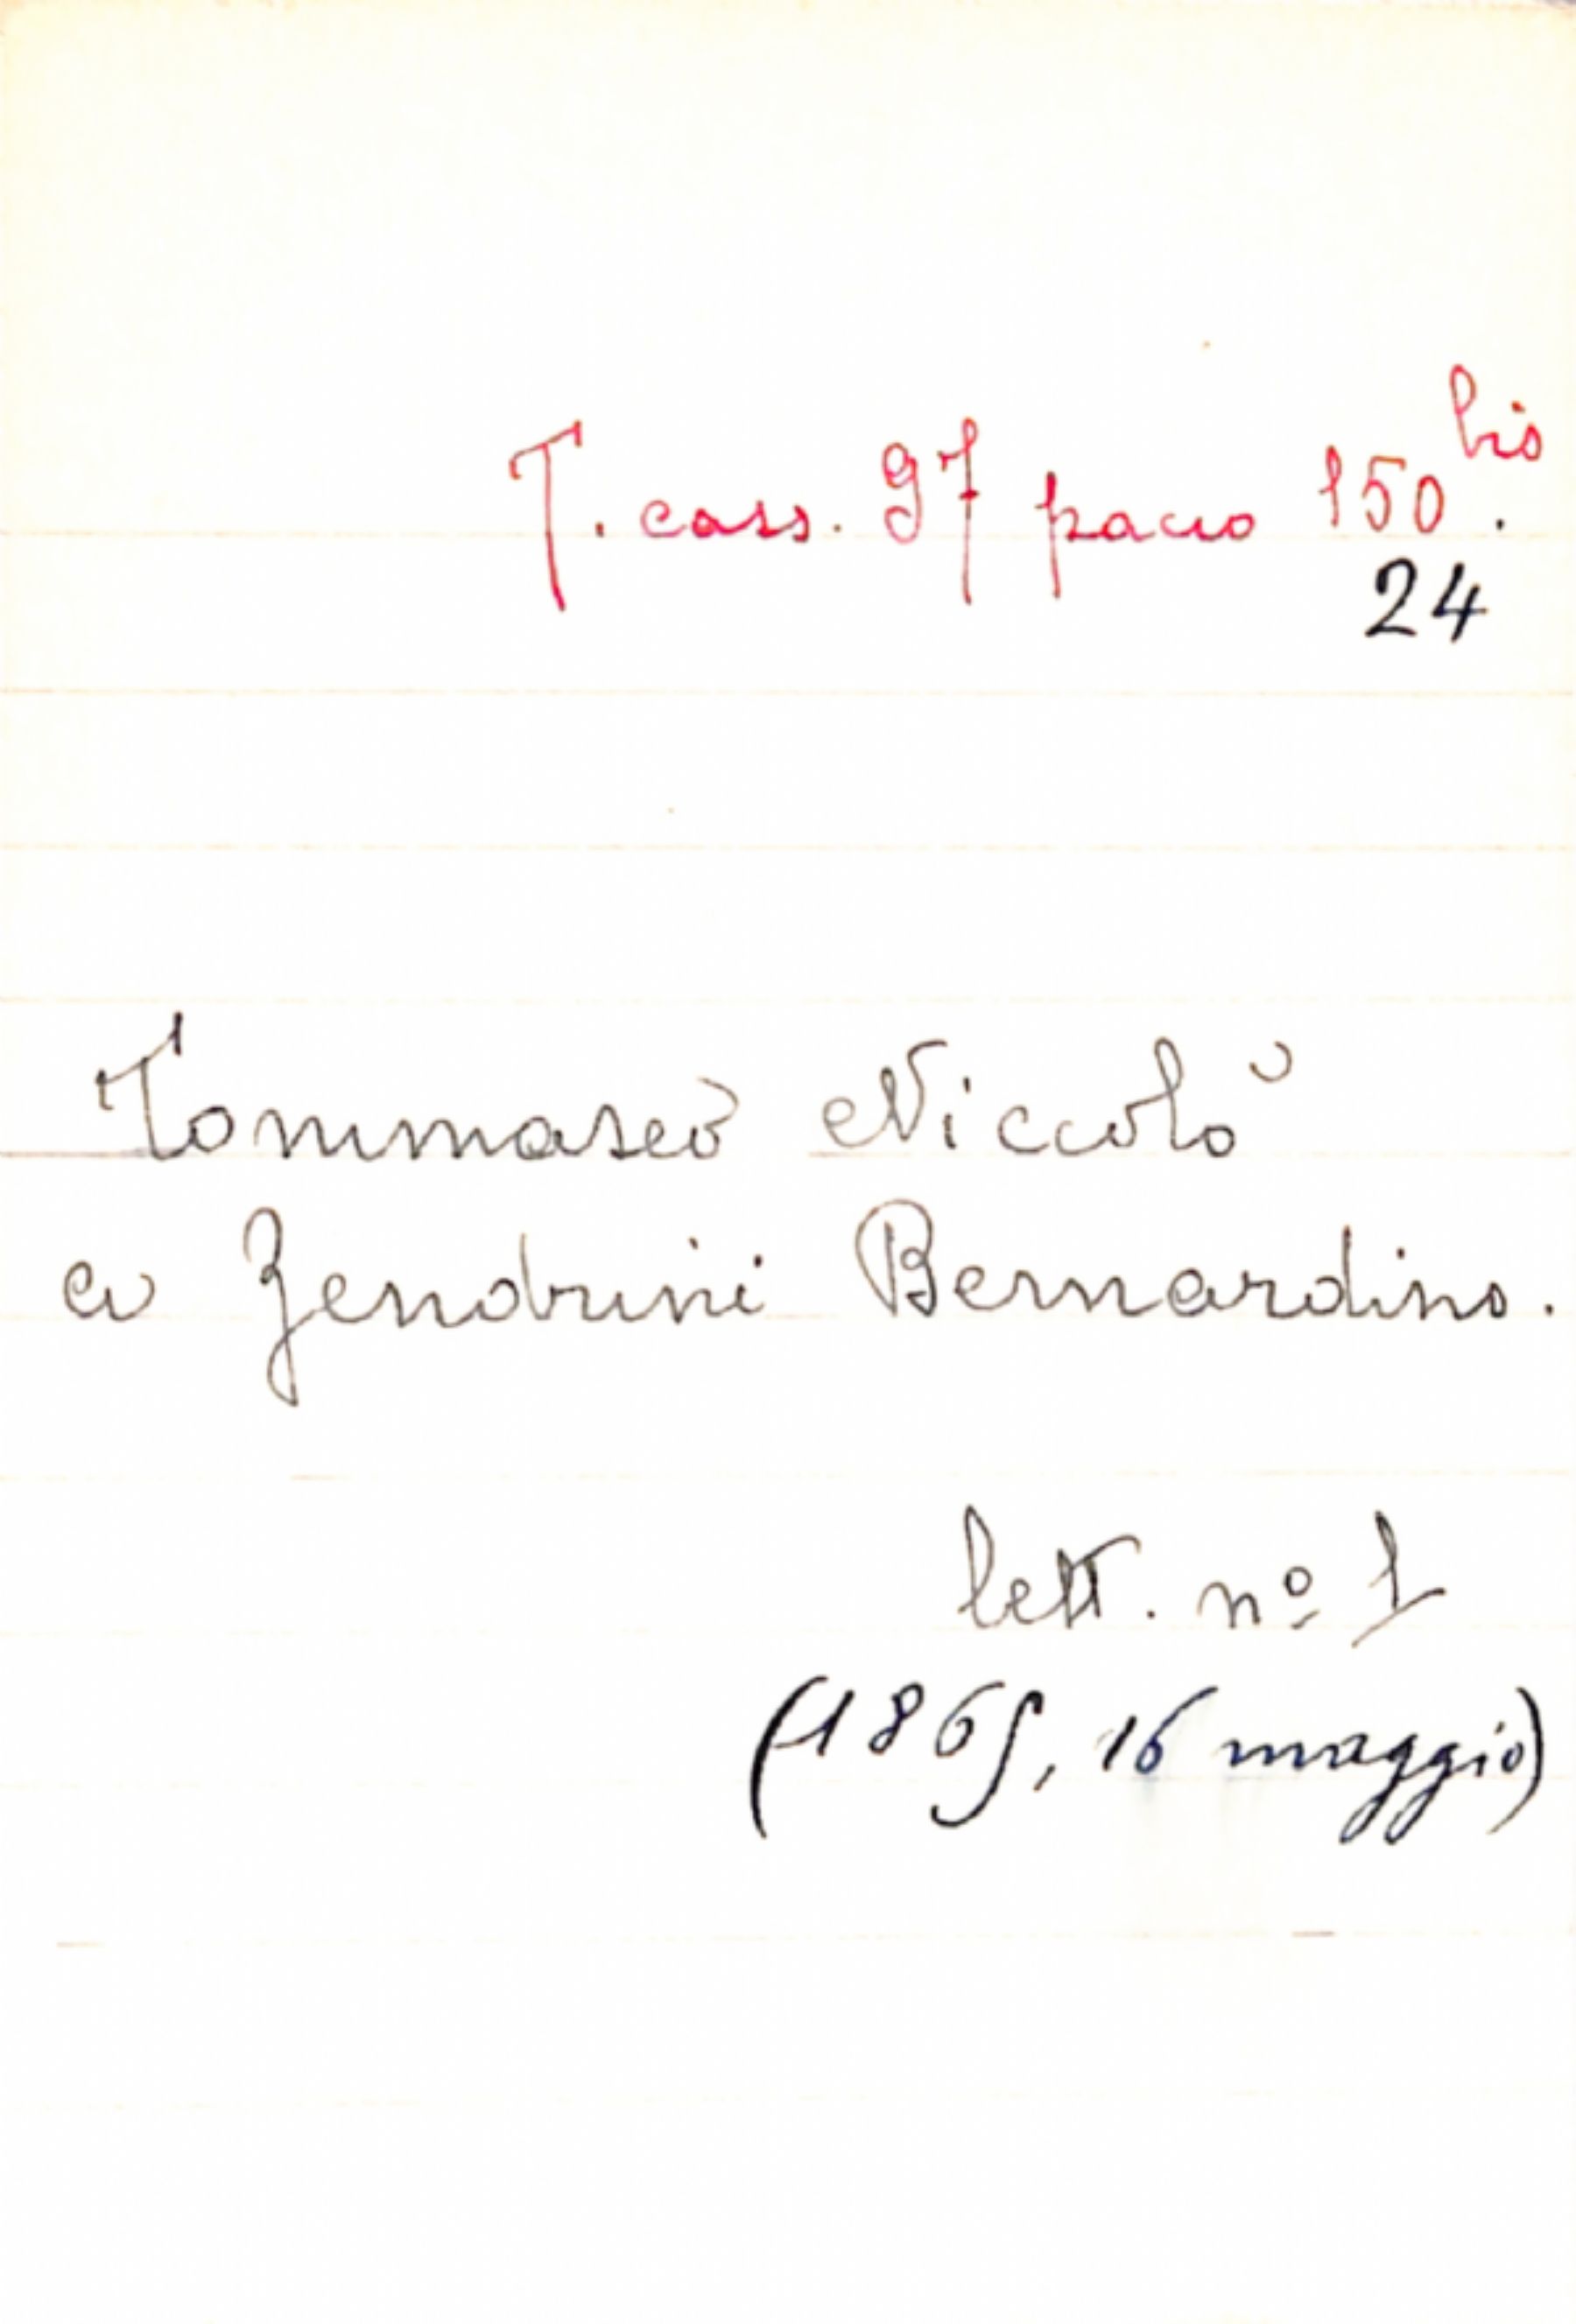 T. cass. 97 pacco 150 bis.
24
Tommaseo Niccolò
a Zendrini Bernardino.
lett. nº 1
(1865, 16 maggio)